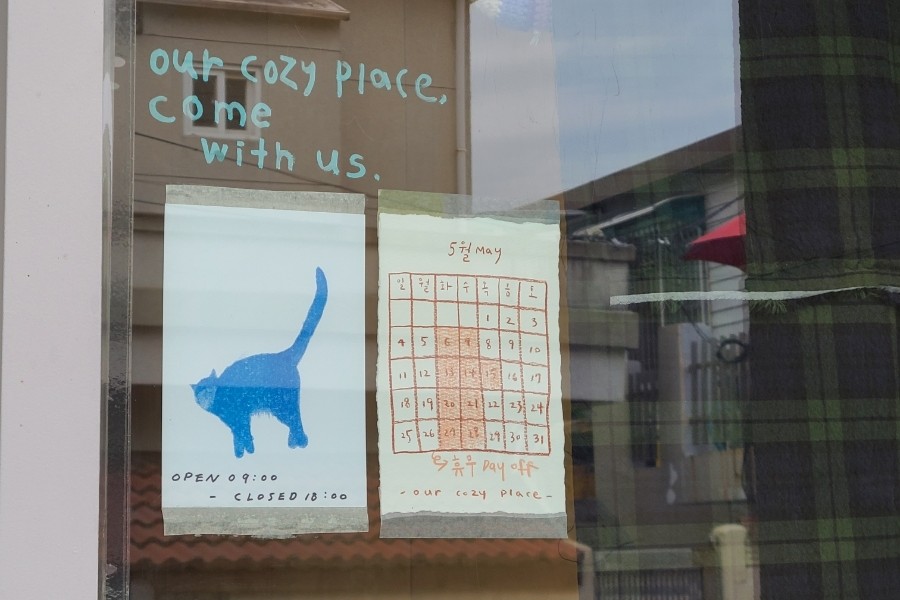 our cozy place,
come
with us.
OPEN 09:00
- CLOSED 18:00
5월 May
일 월 화 수 목 금 토
1 2 3
4 5 6 7 8 9 10
11 12 13 14 15 16 17
18 19 20 21 22 23 24
25 26 27 28 29 30 31
휴무 Day off
- our cozy place -